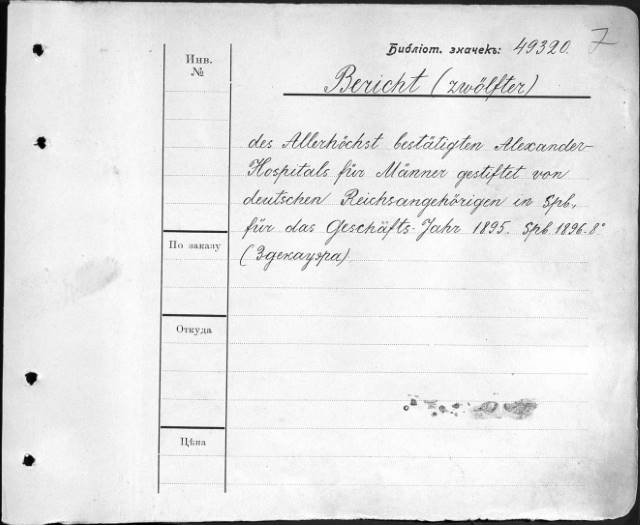 Библіот. значекъ: 49320. 7
Инв.
№
Bericht (zwölfter)
des Allerhöchst bestätigten Alexander-
Hospitals für Männer gestiftet von
deutschen Reichsangehörigen in Spb.
für das Geschäfts-Jahr 1895. Spb. 1896. 8°
(Здекауэра)
По заказу
Откуда
Цѣна